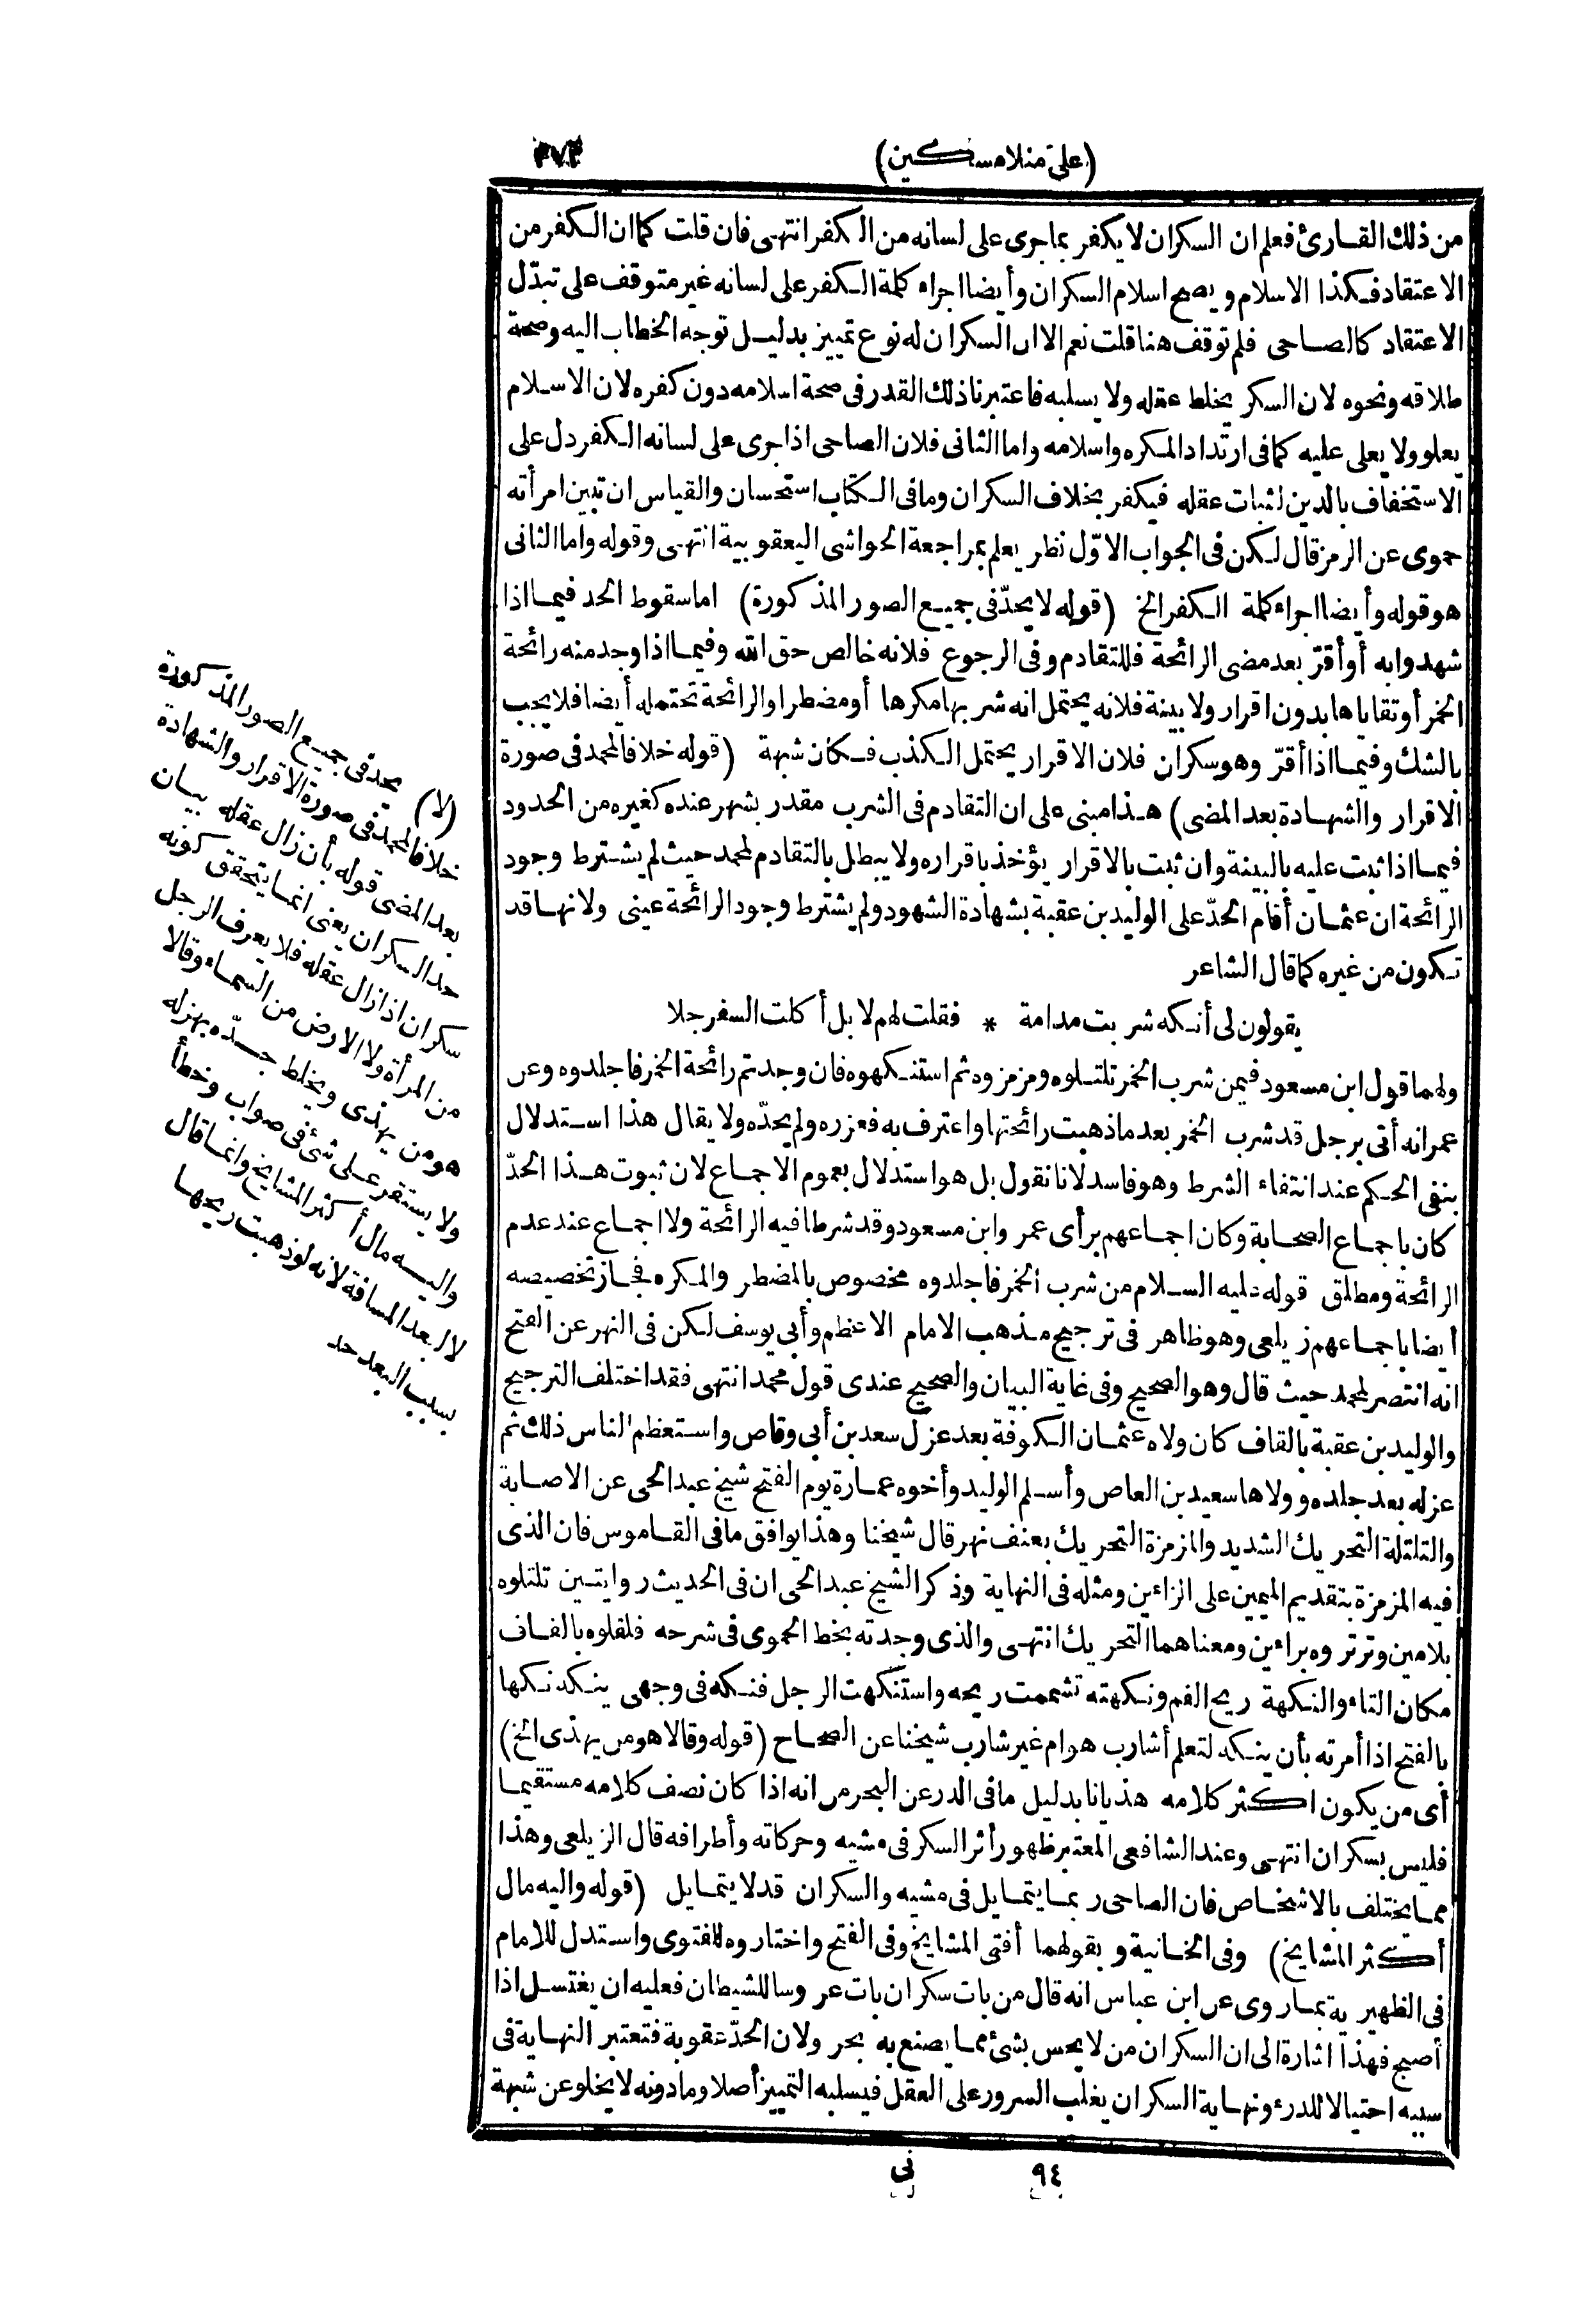 (على منلامسكين)
٣٧٣
من ذلك القارئ فعلم ان السكران لا يكفر بما جرى على لسانه من الكفر انتهى فان قلت كما ان الكفر من
الاعتقاد فكذا الاسلام ويصح اسلام السكران وأيضا اجراء كلمة الكفر على لسانه غير متوقف على تبدّل
الاعتقاد كالصاحى فلم توقف هنا قلت نعم الا ان السكران له نوع تمييز بدليل توجه الخطاب اليه وصحة
طلاقه ونحوه لان السكر يخلط عقله ولا يسلبه فاعتبرنا ذلك القدر فى صحة اسلامه دون كفره لان الاسلام
يعلو ولا يعلى عليه كما فى ارتداد المكره واسلامه واما الثانى فلان الصاحى اذا جرى على لسانه الكفر دل على
الاستخفاف بالدين لثبات عقله فيكفر بخلاف السكران وما فى الكتاب استحسان والقياس ان تبين امرأته
حموى عن الرمز قال لكن فى الجواب الاوّل نظر يعلم بمراجعة الحواشى اليعقوبية انتهى وقوله واما الثانى
هو قوله وأيضا اجراء كلمة الكفر الخ (قوله لا يحدّ فى جميع الصور المذكورة) اما سقوط الحد فيما اذا
شهدوا به أو أقرّ بعد مضى الرائحة فللتقادم وفى الرجوع فلانه خالص حق الله وفيما اذا وجد منه رائحة
الخمر أو تقاياها بدون اقرار ولا بينة فلانه يحتمل انه شربها مكرها أو مضطرا والرائحة تحتمله أيضا فلا يجب
بالشك وفيما اذا أقرّ وهو سكران فلان الاقرار يحتمل الكذب فكان شبهة (قوله خلافا لمحمد فى صورة
الاقرار والشهادة بعد المضى) هذا مبنى على ان التقادم فى الشرب مقدر بشهر عنده كغيره من الحدود
فيما اذا ثبت عليه بالبينة وان ثبت بالاقرار يؤخذ باقراره ولا يبطل بالتقادم لمحمد حيث لم يشترط وجود
الرائحة ان عثمان أقام الحدّ على الوليد بن عقبة بشهادة الشهود ولم يشترط وجود الرائحة عينى ولانها قد
تكون من غيره كما قال الشاعر
يقولون لى أنكه شربت مدامة * فقلت لهم لا بل أكلت السفرجلا
ولهما قول ابن مسعود فيمن شرب الخمر تلتلوه ومزمزوه ثم استنكهوه فان وجدتم رائحة الخمر فاجلدوه وعن
عمر انه أتى برجل قد شرب الخمر بعد ما ذهبت رائحتها واعترف به فعزره ولم يحدّه ولا يقال هذا استدلال
بنفى الحكم عند انتفاء الشرط وهو فاسد لانا نقول بل هو استدلال بعموم الاجماع لان ثبوت هذا الحدّ
كان باجماع الصحابة وكان اجماعهم برأى عمر وابن مسعود وقد شرطا فيه الرائحة ولا اجماع عند عدم
الرائحة ومطلق قوله عليه السلام من شرب الخمر فاجلدوه مخصوص بالمضطر والمكره فجاز تخصيصه
أيضا باجماعهم زيلعى وهو ظاهر فى ترجيح مذهب الامام الاعظم وأبى يوسف لكن فى النهر عن الفتح
انه انتصر لمحمد حيث قال وهو الصحيح وفى غاية البيان والصحيح عندى قول محمد انتهى فقد اختلف الترجيح
والوليد بن عقبة بالقاف كان ولاه عثمان الكوفة بعد عزل سعد بن أبى وقاص واستعظم الناس ذلك ثم
عزله بعد جلده وولاها سعيد بن العاص وأسلم الوليد وأخوه عمارة يوم الفتح شيخ عبد الحى عن الاصابة
والتلتلة التحريك الشديد والمزمزة التحريك بعنف نهر قال شيخنا وهذا يوافق ما فى القاموس فان الذى
فيه المزمزة بتقديم الميمين على الزاءين ومثله فى النهاية وذكر الشيخ عبد الحى ان فى الحديث روايتين تلتلوه
بلامين وترتروه براءين ومعناهما التحريك انتهى والذى وجدته بخط الحموى فى شرحه فلقلوه بالقاف
مكان التاء والنكهة ريح الفم ونكهته تشممت ريحه واستنكهت الرجل فنكه فى وجهى ينكه نكها
بالفتح اذا أمرته بأن ينكه لتعلم أشارب هو ام غير شارب شيخنا عن الصحاح (قوله وقالا هو من يهذى الخ)
أى من يكون اكثر كلامه هذيانا بدليل ما فى الدر عن البحر من انه اذا كان نصف كلامه مستقيما
فليس بسكران انتهى وعند الشافعى المعتبر ظهور أثر السكر فى مشيه وحركاته وأطرافه قال الزيلعى وهذا
مما يختلف بالاشخاص فان الصاحى ربما يتمايل فى مشيه والسكران قد لا يتمايل (قوله واليه مال
أكثر المشايخ) وفى الخانية وبقولهما أفتى المشايخ وفى الفتح واختاروه للفتوى واستدل للامام
فى الظهيرية بما روى عن ابن عباس انه قال من بات سكران بات عروسا للشيطان فعليه ان يغتسل اذا
أصبح فهذا اشارة الى ان السكران من لا يحس بشئ مما يصنع به بحر ولان الحدّ عقوبة فتعتبر النهاية فى
سببه احتيالا للدرء ونهاية السكر ان يغلب السرور على العقل فيسلبه التمييز أصلا وما دونه لا يخلو عن شبهة
(لا) يحد فى جميع الصور المذكورة
خلافا لمحمد فى صورة الاقرار والشهادة
بعد المضى قوله بأن زال عقله بيان
حد السكران يعنى انما يتحقق كونه
سكران اذا زال عقله فلا يعرف الرجل
من المرأة ولا الارض من السماء وقالا
هو من يهذى ويخلط جدّه بهزله
ولا يستقر على شئ فى صواب وخطأ
واليه مال أكثر المشايخ وانما قال
لا لبعد المسافة لانه لو ذهبت ريحها
بسبب البعد حد
٩٤
نى